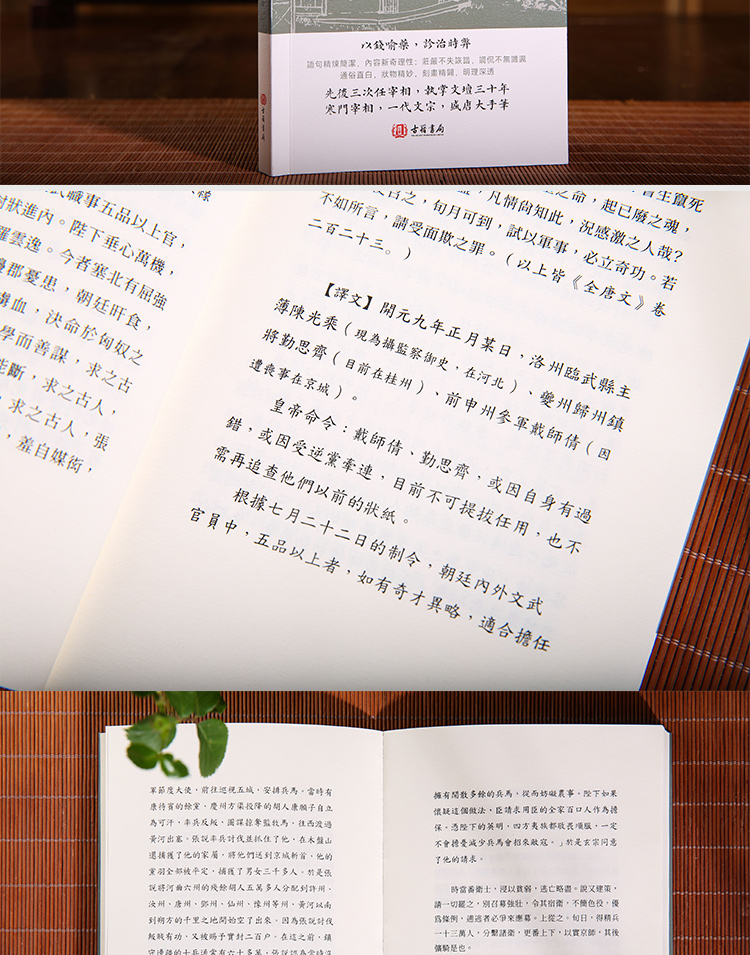 以錢喻藥，診治時弊
語句精煉簡潔，內容新奇理性；莊嚴不失詼諧，調侃不無諷諫
通俗直白，狀物精妙，刻畫精闢，明理深透
先後三次任宰相，執掌文壇三十年
寒門宰相，一代文宗，盛唐大手筆
古籍書局
武職事五品以上官，
封狀進內。陛下垂心萬機，
羅雲逸。今者塞北有屈強
邊郡憂患，朝廷旰食，
講血，決命於匈奴之
學而善謀，求之古
能斷，求之古人，
，求之古人，張
，羞自媒衒，
之命，起已廢之魂，
召之，旬月可到，試以軍事，必立奇功。若
凡情尙知此，況感激之人哉？
不如所言，請受面欺之罪。（以上皆《全唐文》卷
二百二十三。）
【譯文】開元九年正月某日，洛州臨武縣主
薄陳光乘（現為攝監察御史，在河北）、夔州歸州鎮
將勤思齊（目前在桂州）、前申州參軍戴師倩（因
遭喪事在京城）。
皇帝命令：戴師倩、勤思齊，或因自身有過
錯，或因受逆黨牽連，目前不可提拔任用，也不
需再追查他們以前的狀紙。
根據七月二十二日的制令，朝廷內外文武
官員中，五品以上者，如有奇才異略，適合擔任
軍節度大使，前往巡視五城，安排兵馬。當時有
康待賓的餘黨、慶州方渠投降的胡人康願子自立
為可汗，率兵反叛，圖謀掠奪監牧馬，往西渡過
黃河出塞。張說率兵討伐並抓住了他，在木盤山
還捕獲了他的家屬，將他們送到京城斬首，他的
黨羽全部被平定，捕獲了男女三千多人。於是張
說將河曲六州的殘餘胡人五萬多人分配到許州、
汝州、唐州、鄧州、仙州、豫州等州，黃河以南
到朔方的千里之地開始空了出來。因為張說討伐
叛賊有功，又被賜予實封二百户。在這之前，鎮
守邊疆的士兵通常有六十多萬，張說認為當時沒
擁有閒散多餘的兵馬，從而妨礙農事。陛下如果
懷疑這個做法，臣請求用臣的全家百口人作為擔
保。憑陛下的英明，四方夷族都敬畏順服，一定
不會擔憂減少兵馬會招來敵寇。」於是玄宗同意
了他的請求。
時當番衛士，浸以貧弱，逃亡略盡。說又建策，
請一切罷之，別召募強壯，令其宿衛，不簡色役，優
為條例，逋逃者必爭來應募。上從之。旬日，得精兵
一十三萬人，分繫諸衛，更番上下，以實京師，其後
彍騎是也。